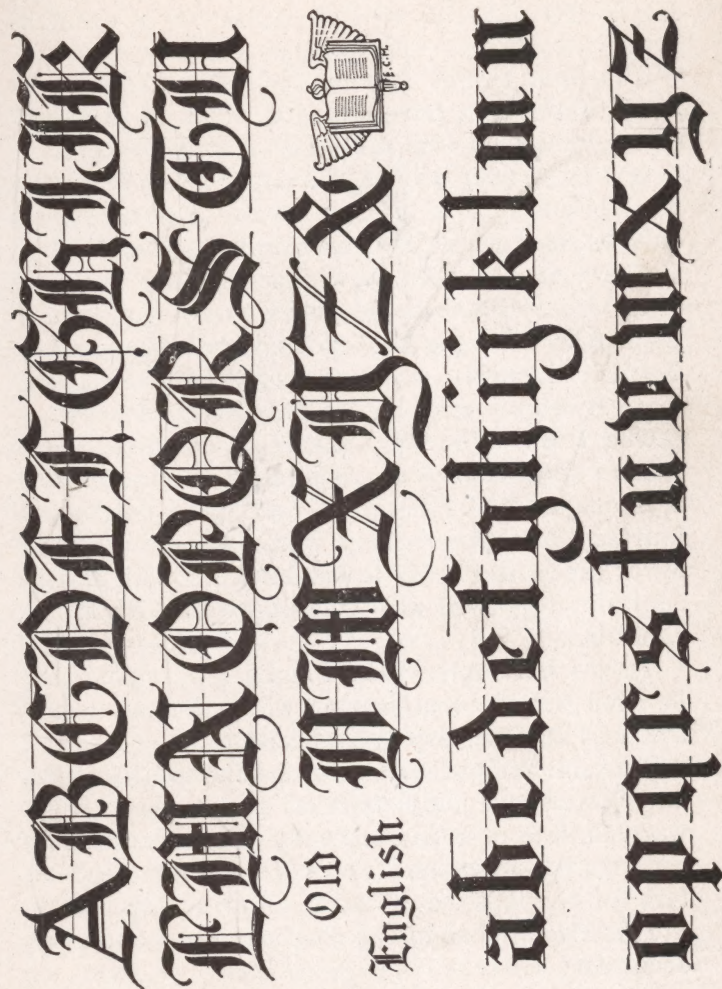 A B C D E F G H I J K
L M N O P Q R S T U
Old
English
V W X Y Z &
E.C.M.
a b c d e f g h i j k l m n
o p q r s t u v w x y z